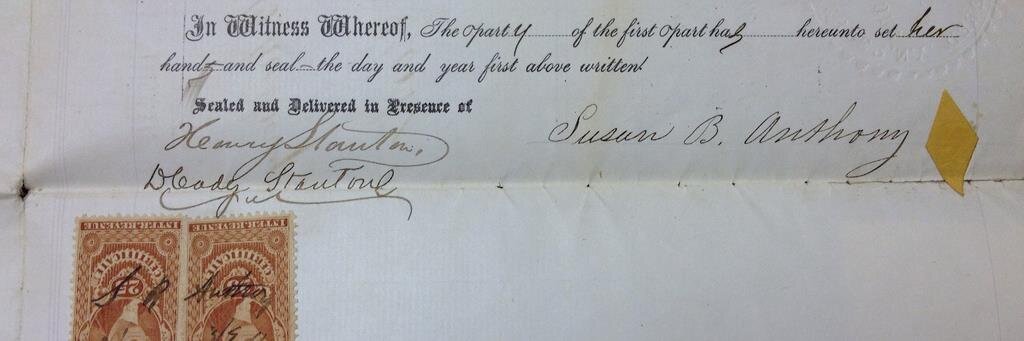 In Witness Whereof, The party of the first part has hereunto set her
hand and seal the day and year first above written.
Sealed and Delivered in Presence of
Henry Stanton,
Susan B. Anthony
D Cady Stanton
INTER. REVENUE
INTER. REVENUE
S B
Anthony